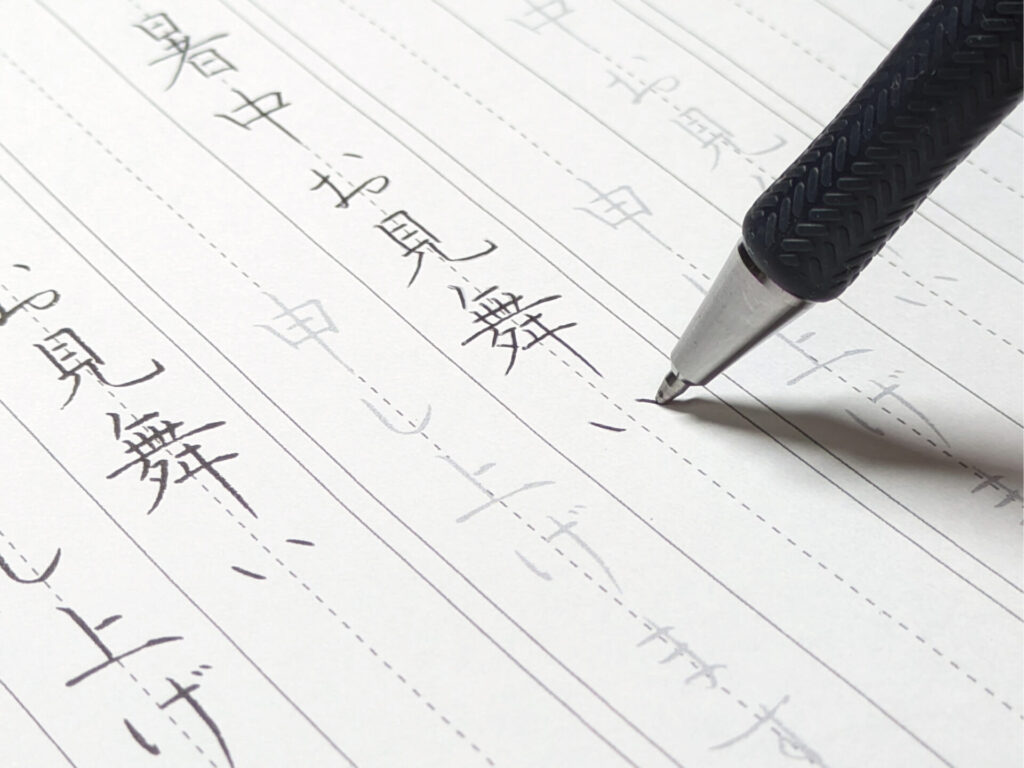 中お見
申し上げま
暑中お見舞い
申し上げます
お見舞い
し上げ